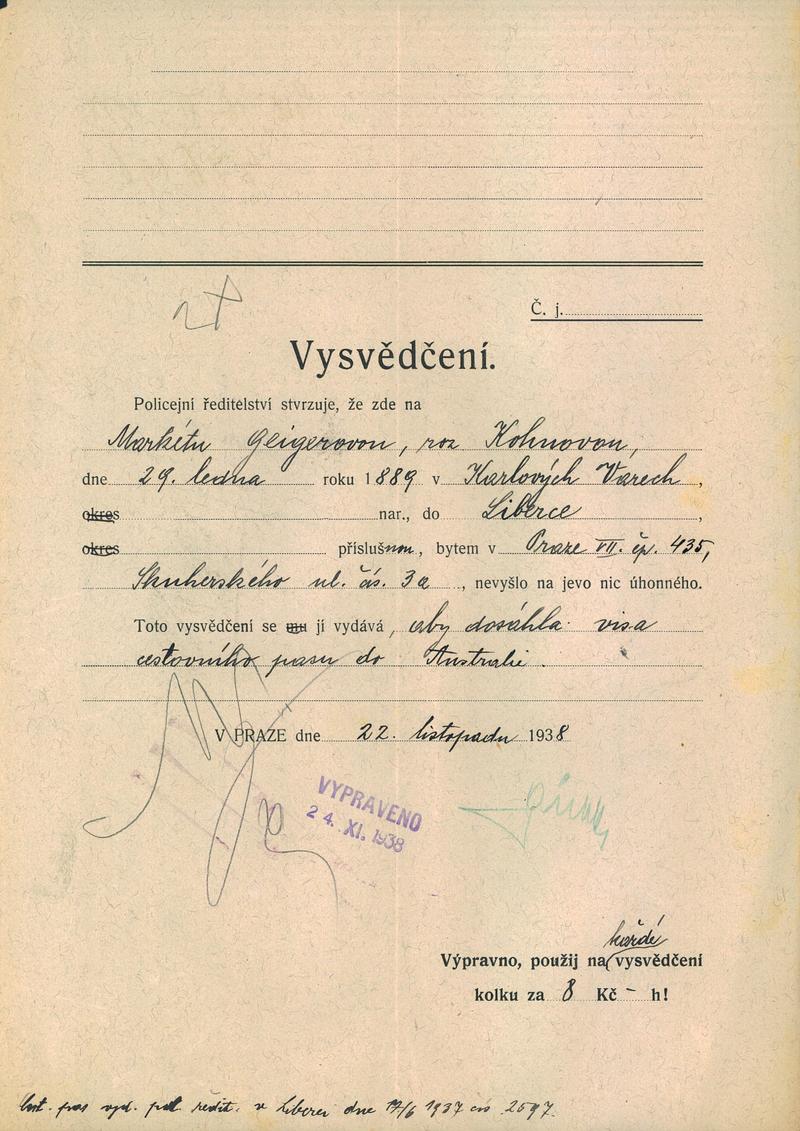 2x
Č. j.
Vysvědčení.
Policejní ředitelství stvrzuje, že zde na
Markétu Geigerovou, roz Kohnovou,
dne 29. ledna roku 1889 v Karlových Varech,
okres nar., do Liberce,
okres příslušnou, bytem v Praze VII. čp. 435,
Skuherského ul. čís. 3a, nevyšlo na jevo nic úhonného.
Toto vysvědčení se mu jí vydává, aby dosáhla visa
cestovního pasu do Australie.
V PRAZE dne 22. listopadu 1938
VYPRAVENO
24. XI. 1938
každé
Výpravno, použij na vysvědčení
kolku za 8 Kč - h!
cest. pas vyd. pol. ředit. v Liberci dne 17/6 1937 čís 2597.